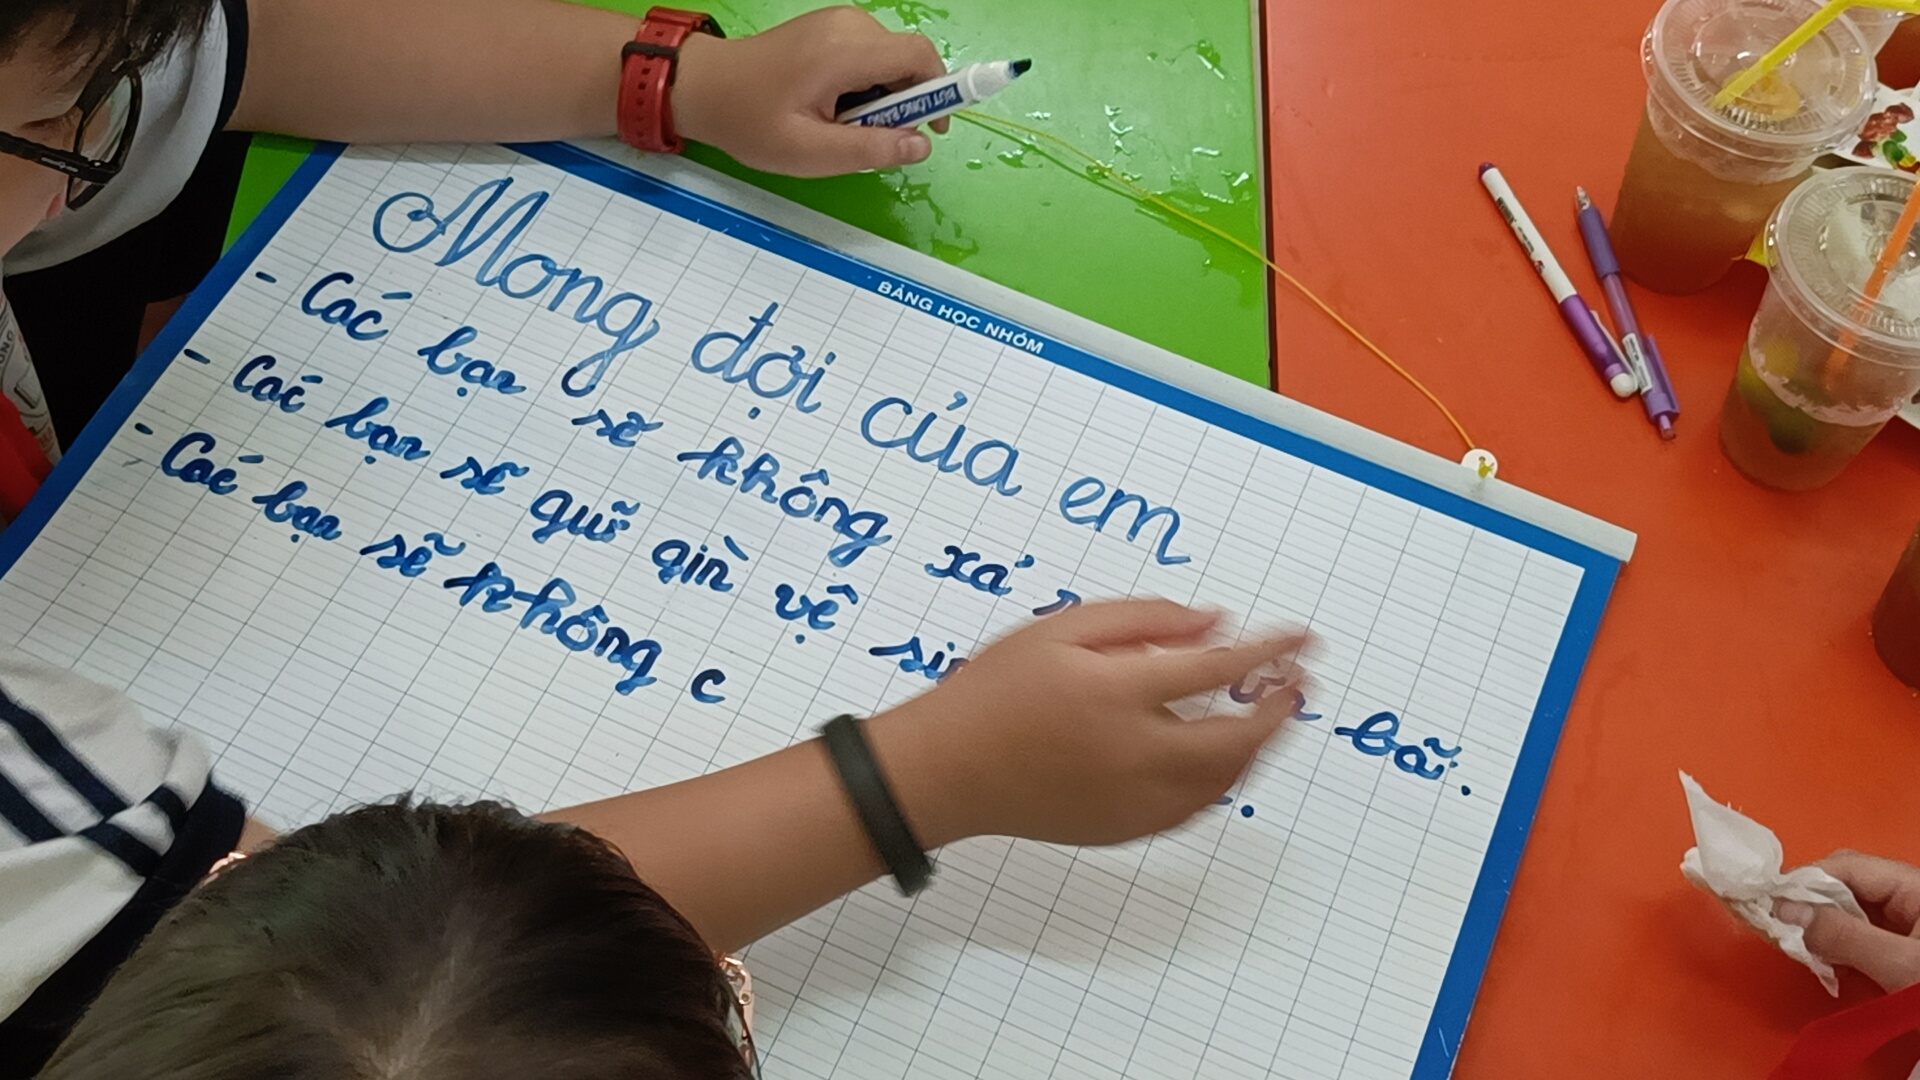 BẢNG HỌC NHÓM
Mong đợi của em
- Các bạn sẽ không xả bã.
- Các bạn sẽ giữ gìn vệ .
- Các bạn sẽ không c
BÚT LÔNG BẢNG